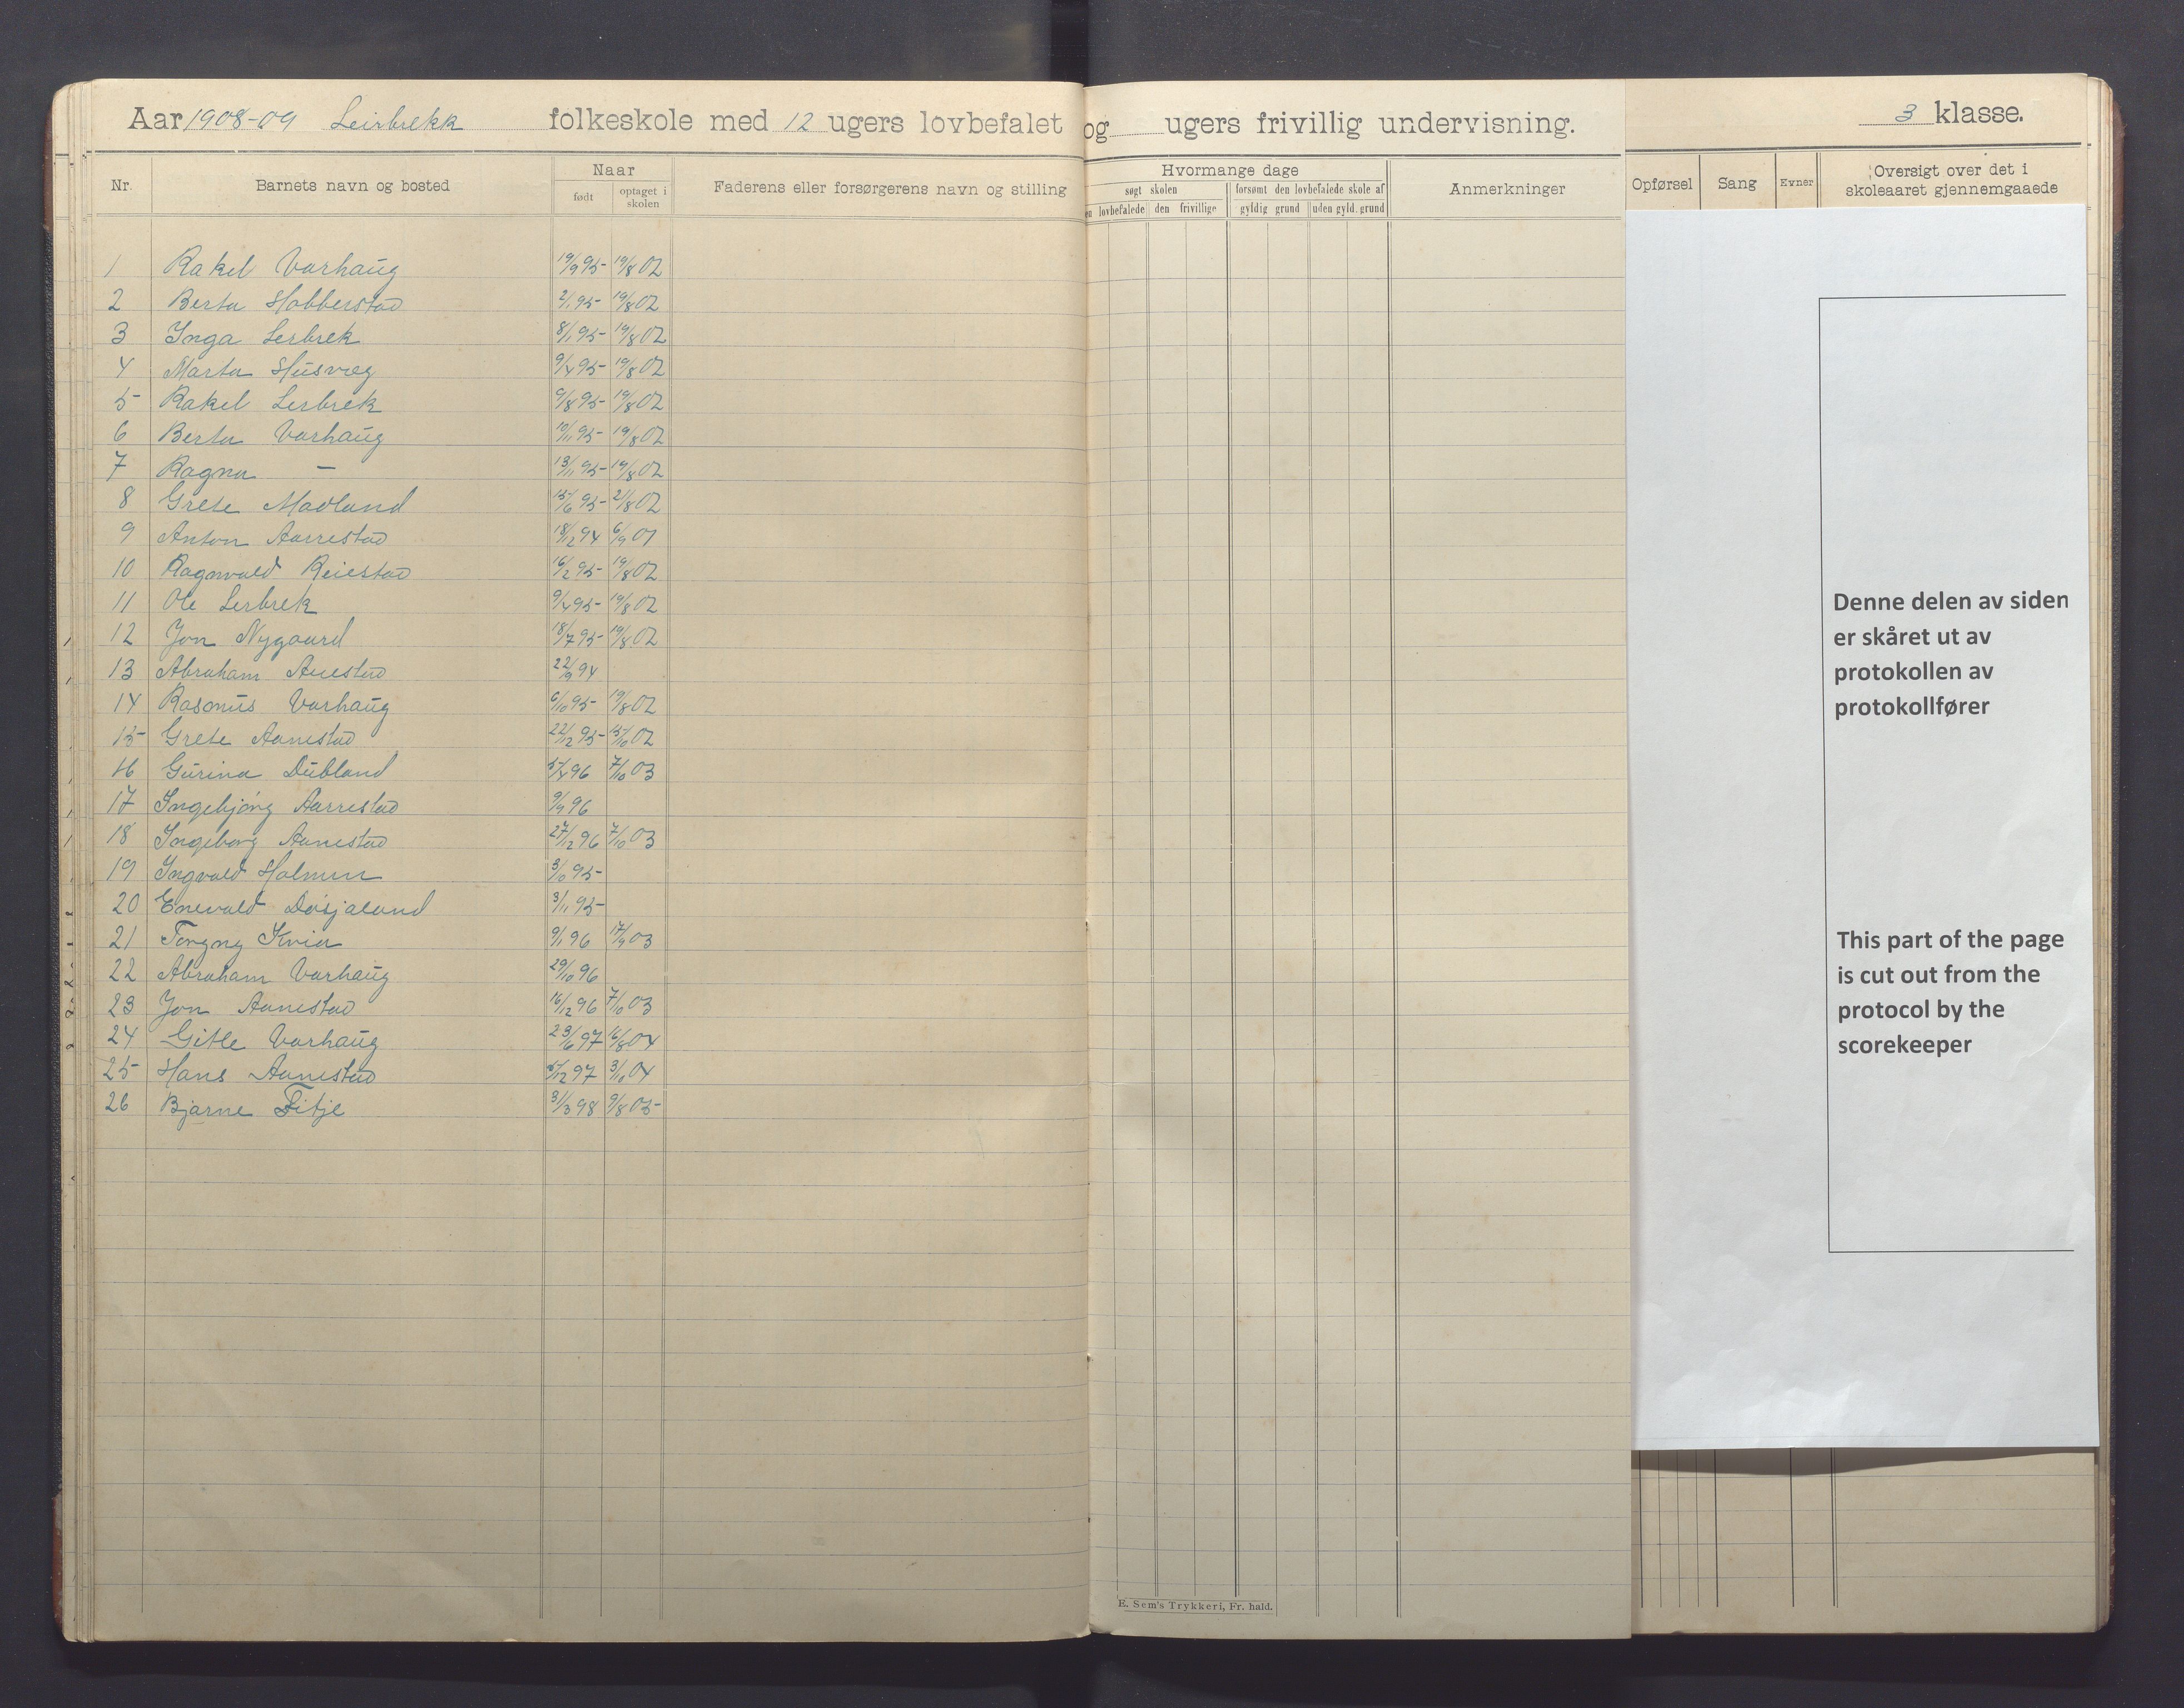 Aar 1908-09 Leirbrekk folkeskole med 12 ugers lovbefalet og ugers frivillig undervisning. 3 klasse.
Nr. Barnets navn og bosted Naar født optaget i skolen Faderens eller forsørgerens navn og stilling
Hvormange dage søgt skolen den lovbefalede den frivillige forsømt den lovbefalede skole af gyldig grund uden gyld. grund Anmerkninger
Opførsel Sang Evner Oversigt over det i skoleaaret gjennemgaaede
1 Rakel Varhaug 19/9 95 19/8 02
2 Berta Hobberstad 2/1 95 19/8 02
3 Inga Lerbrek 8/1 95 19/8 02
4 Marta Husveg 9/4 95 19/8 02
5 Rakel Lerbrek 9/8 95 19/8 02
6 Berta Varhaug 10/11 95 19/8 02
7 Ragna — 13/11 95 19/8 02
8 Grete Madland 15/6 95 21/8 02
9 Anton Aarrestad 18/12 94 6/9 01
10 Ragnvald Reiestad 16/2 95 19/8 02
11 Ole Lerbrek 9/4 95 19/8 02
12 Jon Nygaard 18/7 95 19/8 02
13 Abraham Auestad 22/9 94
14 Rasmus Varhaug 6/10 95 19/8 02
15 Grete Aanestad 22/12 95 15/10 02
16 Gurina Dubland 5/4 96 7/10 03
17 Ingebjörg Aarrestad 9/9 96
18 Ingeborg Aanestad 27/12 96 7/10 03
19 Ingvald Holmen 3/10 95
20 Enevald Døsjaland 3/11 95
21 Torgny Kvia 9/1 96 17/9 03
22 Abraham Varhaug 29/10 96
23 Jon Aanestad 16/12 96 7/10 03
24 Gitle Varhaug 23/6 97 16/8 04
25 Hans Aanestad 5/12 97 3/10 04
26 Bjarne Fitje 31/3 98 9/8 05
E. Sem's Trykkeri, Fr. hald.
Denne delen av siden
er skåret ut av
protokollen av
protokollfører
This part of the page
is cut out from the
protocol by the
scorekeeper